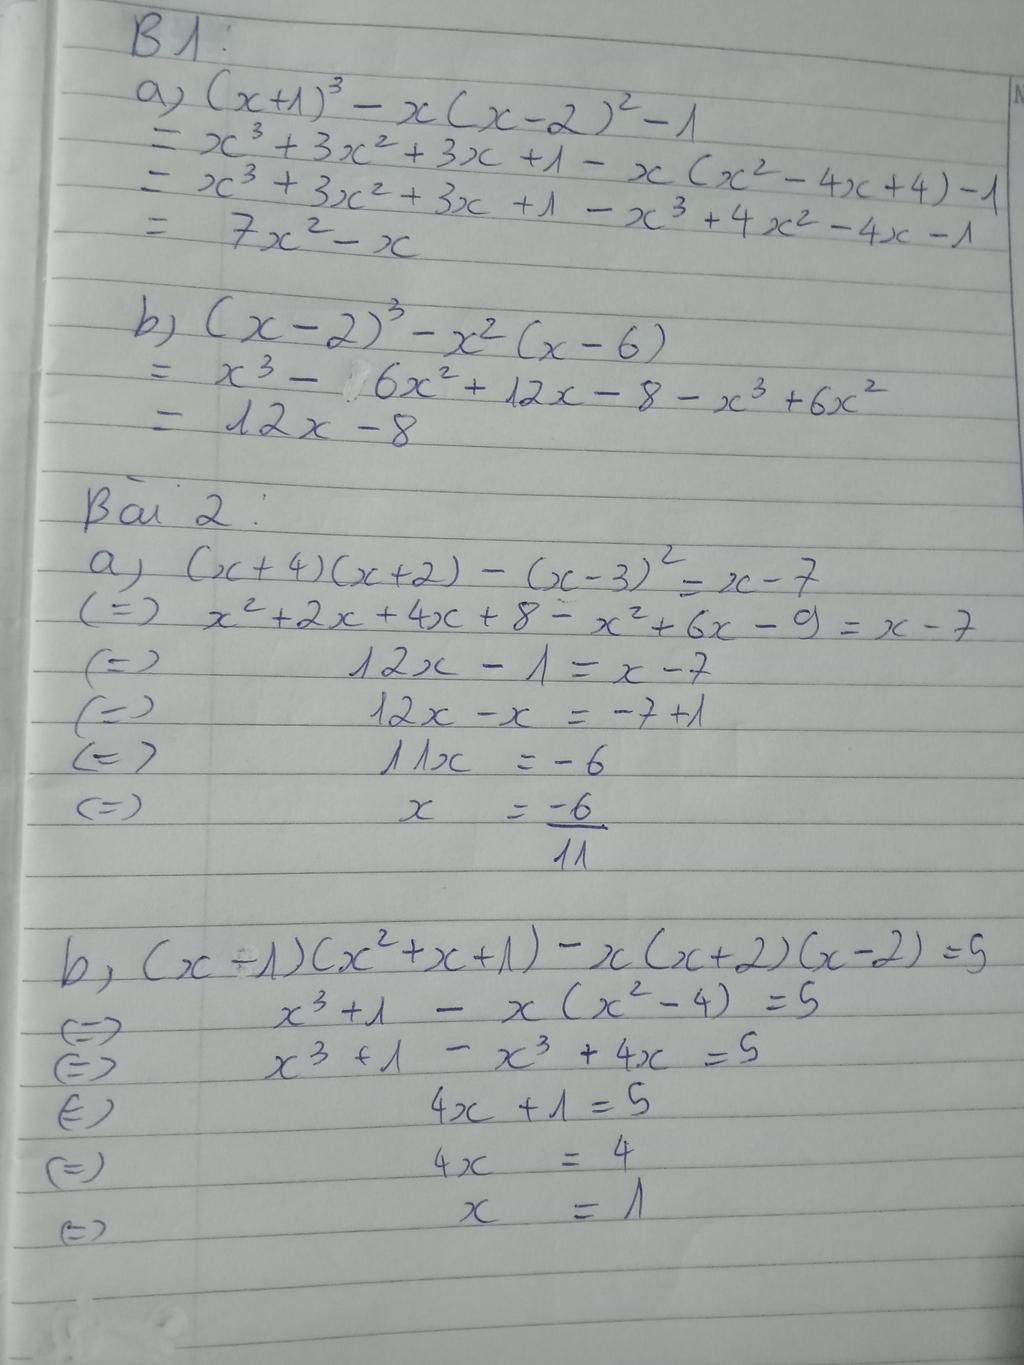 B1:
a, (x+1)³ - x(x-2)² - 1
= x³ + 3x² + 3x + 1 - x(x² - 4x + 4) - 1
= x³ + 3x² + 3x + 1 - x³ + 4x² - 4x - 1
= 7x² - x
b, (x - 2)³ - x²(x - 6)
= x³ - 6x² + 12x - 8 - x³ + 6x²
= 12x - 8
Bài 2:
a, (x+4)(x+2) - (x-3)² = x - 7
(=) x² + 2x + 4x + 8 - x² + 6x - 9 = x - 7
(=) 12x - 1 = x - 7
(=) 12x - x = -7 + 1
(=) 11x = -6
(=) x = -6
11
b, (x - 1)(x² + x + 1) - x(x+2)(x-2) = 5
(=) x³ + 1 - x(x² - 4) = 5
(=) x³ + 1 - x³ + 4x = 5
(=) 4x + 1 = 5
(=) 4x = 4
(=) x = 1